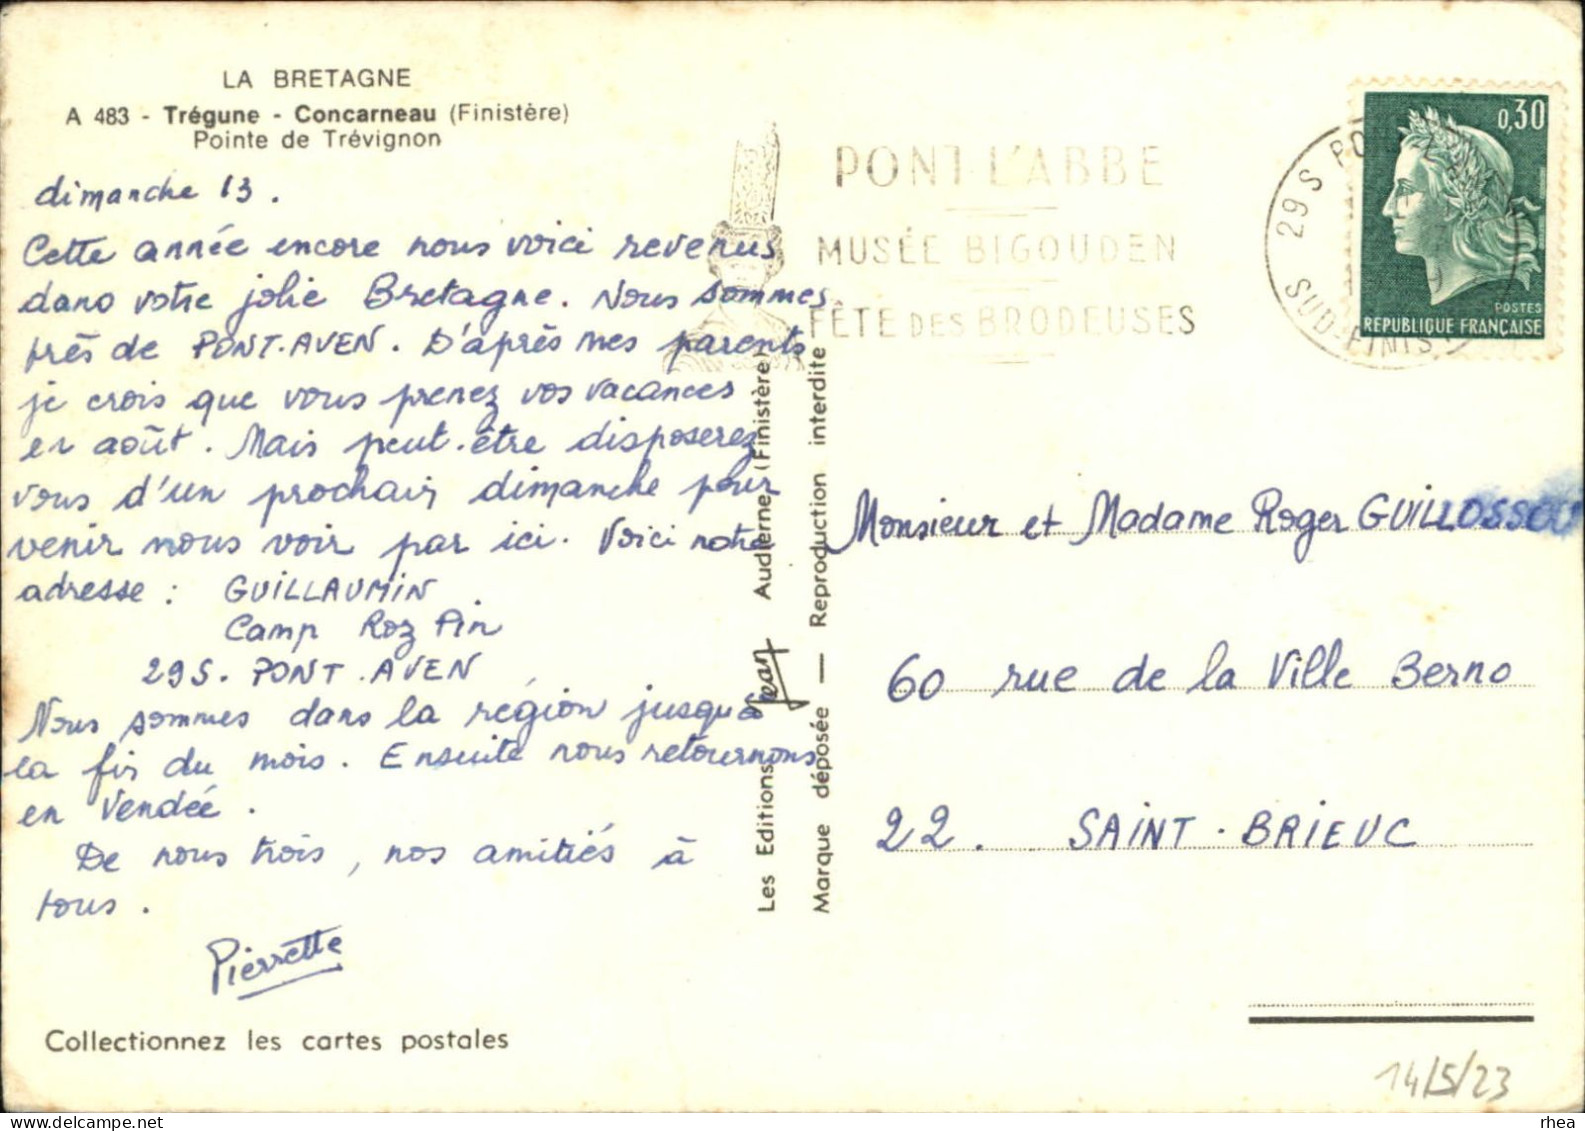 LA BRETAGNE
A 483 - Trégune - Concarneau (Finistère)
Pointe de Trévignon
dimanche 13.
Cette année encore nous voici revenus
dans votre jolie Bretagne. Nous sommes
près de PONT-AVEN. D'après mes parents
je crois que vous prenez vos vacances
en août. Mais peut-être disposerez
vous d'un prochain dimanche pour
venir nous voir par ici. Voici notre
adresse : GUILLAUMIN
Camp Roz Pin
29S. PONT-AVEN
Nous sommes dans la région jusqu'à
la fin du mois. Ensuite nous retournons
en Vendée.
De nous trois, nos amitiés à
tous.
Pierrette
Collectionnez les cartes postales
Les Editions Jean Audierne (Finistère)
Marque déposée — Reproduction interdite
PONT-L'ABBE
MUSÉE BIGOUDEN
FÊTE DES BRODEUSES
29S
SUD-FINIS
0,30
POSTES
REPUBLIQUE FRANÇAISE
Monsieur et Madame Roger GUILLOSSOU
60 rue de la Ville Berno
22. SAINT-BRIEUC
14/5/23
delcampe.net
rhea